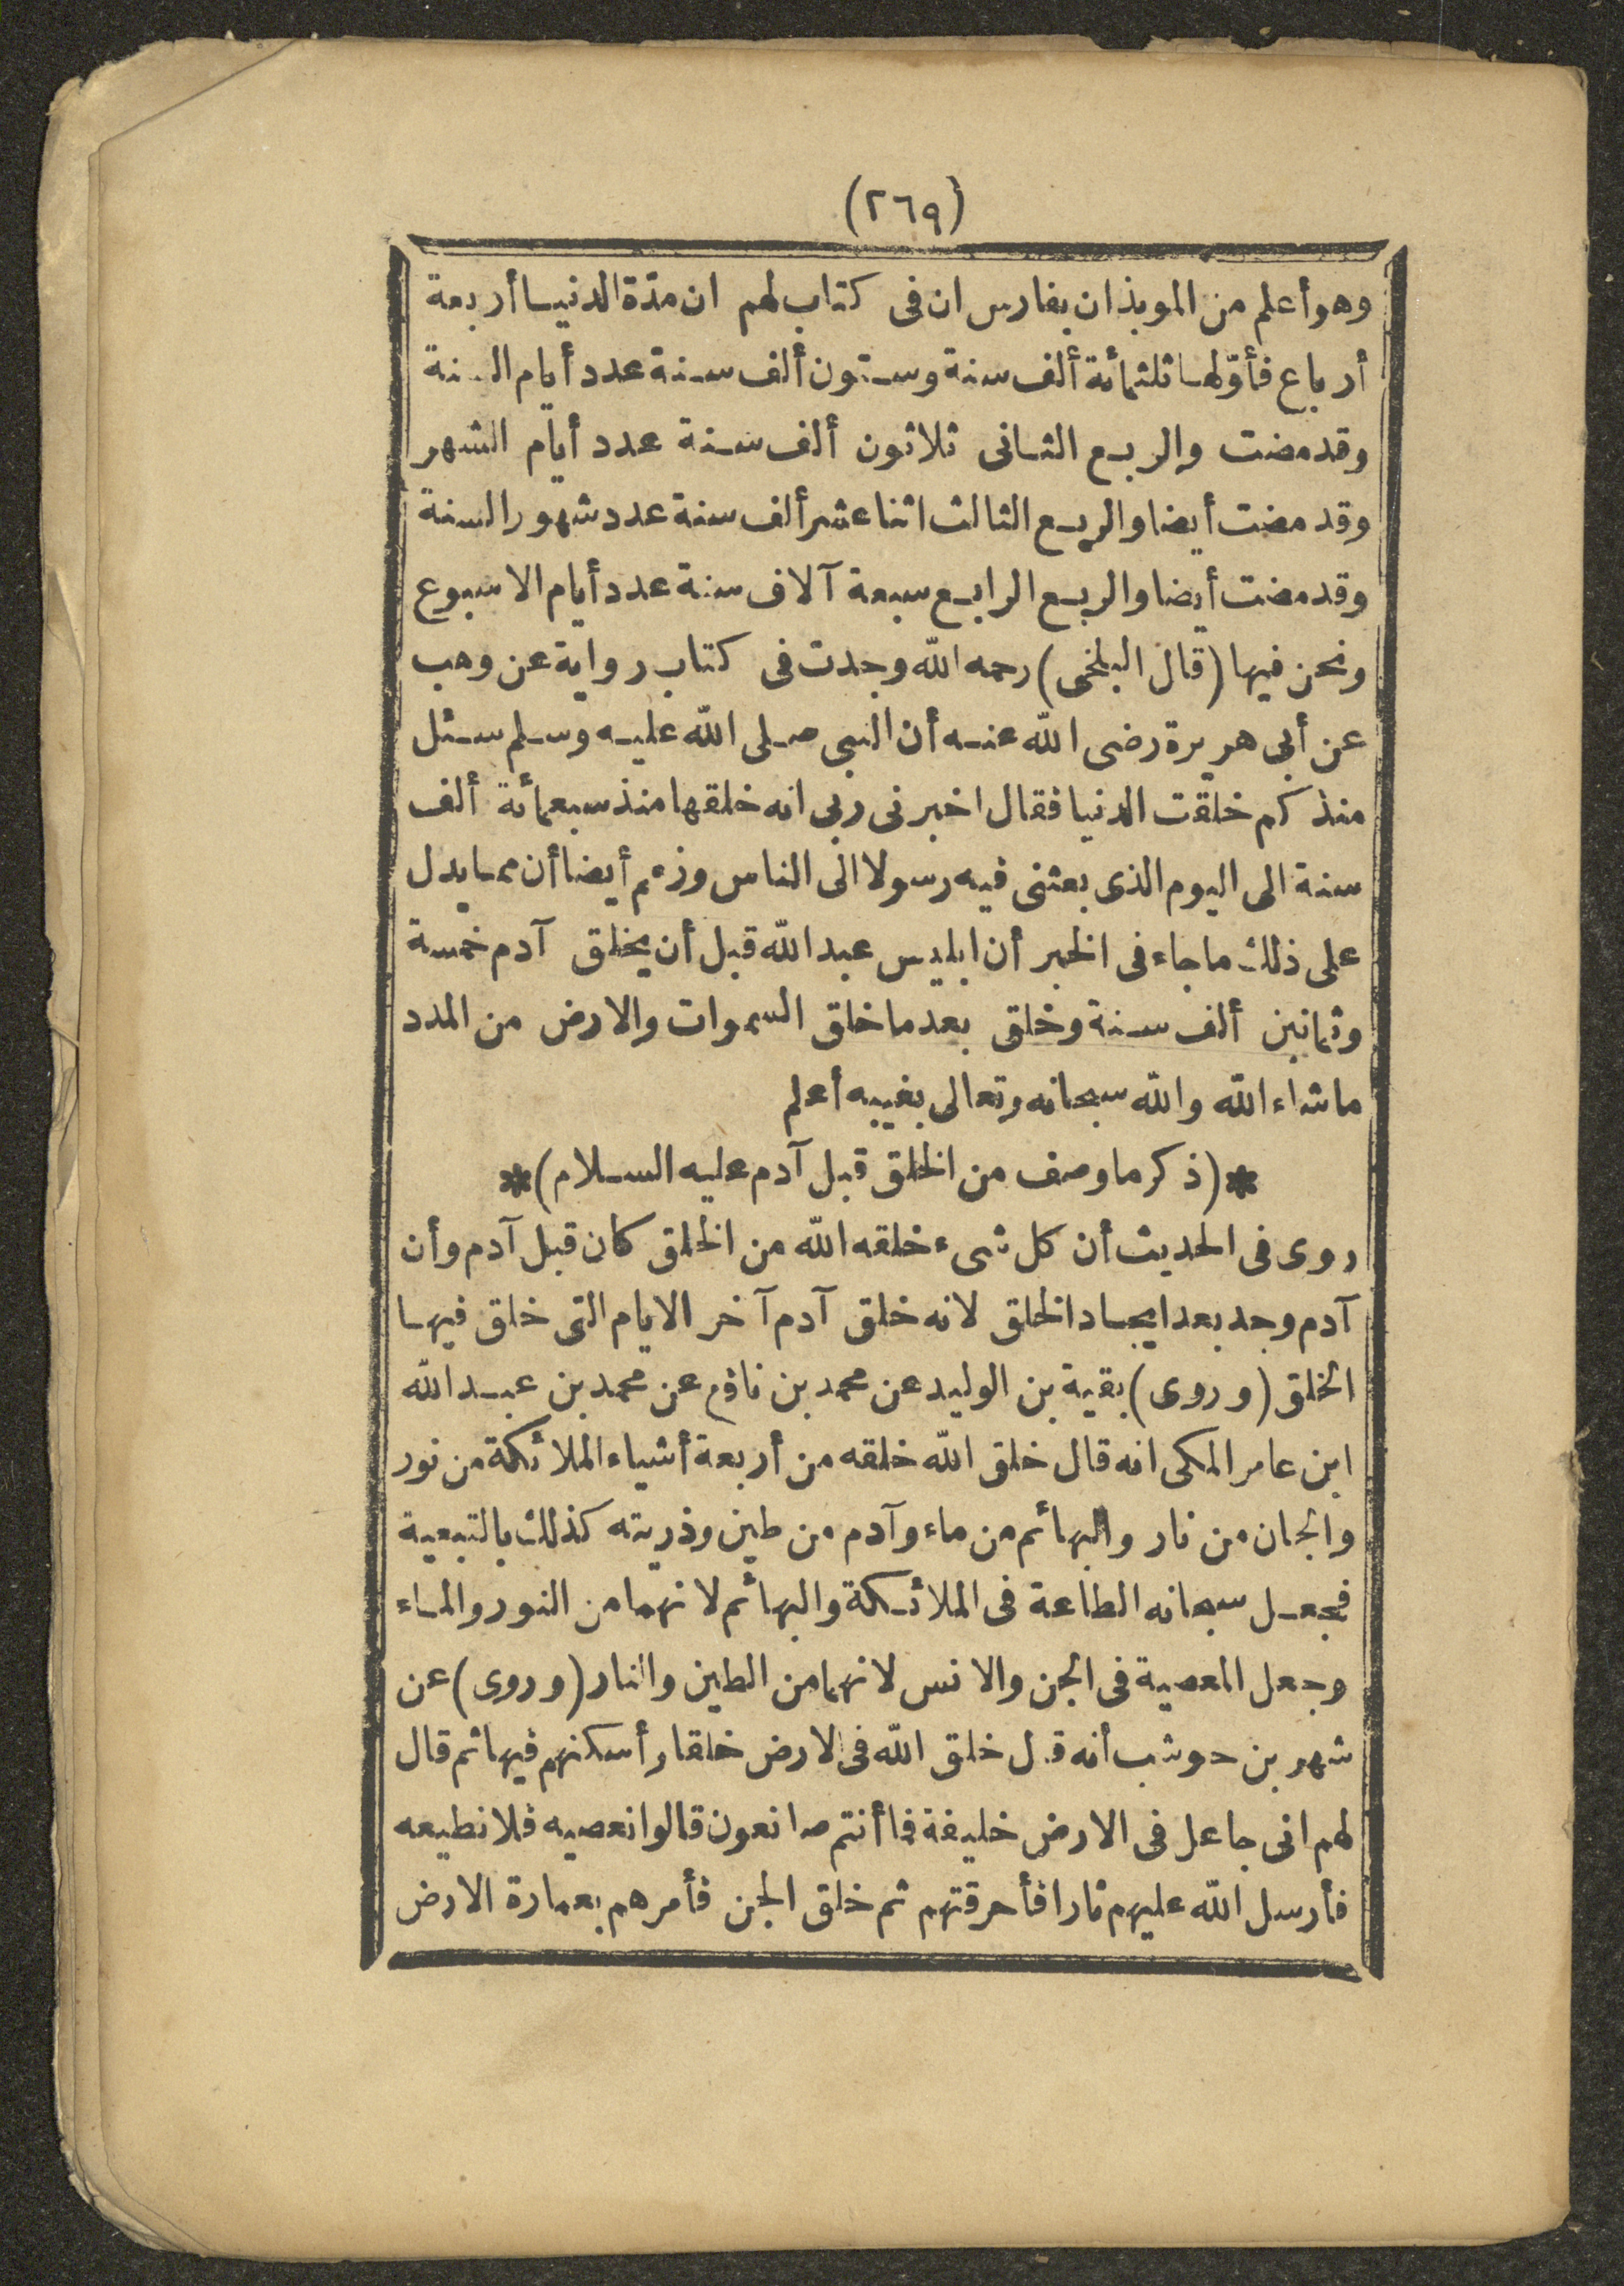 (٢٦٩)
وهو أعلم من الموبذان بفارس ان فى كتاب لهم ان مدّة الدنيا أربعة
أرباع فأوّلها ثلثمائة ألف سنة وستون ألف سنة عدد أيام السنة
وقد مضت والربع الثانى ثلاثون ألف سنة عدد أيام الشهر
وقد مضت أيضا والربع الثالث اثنا عشر ألف سنة عدد شهور السنة
وقد مضت أيضا والربع الرابع سبعة آلاف سنة عدد أيام الاسبوع
ونحن فيها (قال البلخى) رحمه الله وجدت فى كتاب رواية عن وهب
عن أبى هريرة رضى الله عنه أن النبى صلى الله عليه وسلم سئل
منذ كم خلقت الدنيا فقال اخبرنى ربى انه خلقها منذ سبعمائة ألف
سنة الى اليوم الذى بعثنى فيه رسولا الى الناس وزعم أيضا أن مما يدل
على ذلك ما جاء فى الخبر أن ابليس عبد الله قبل أن يخلق آدم خمسة
وثمانين ألف سنة وخلق بعد ما خلق السموات والارض من المدد
ما شاء الله والله سبحانه وتعالى بغيبه أعلم
*(ذكر ما وصف من الخلق قبل آدم عليه السلام)*
روى فى الحديث أن كل شىء خلقه الله من الخلق كان قبل آدم وأن
آدم وجد بعد ايجاد الخلق لانه خلق آدم آخر الايام التى خلق فيها
الخلق (وروى) بقية بن الوليد عن محمد بن نافع عن محمد بن عبد الله
ابن عامر المكى انه قال خلق الله خلقه من أربعة أشياء الملائكة من نور
والجان من نار والبهائم من ماء وآدم من طين وذريته كذلك بالتبعية
فجعل سبحانه الطاعة فى الملائكة والبهائم لانهما من النور والماء
وجعل المعصية فى الجن والانس لانهما من الطين والنار (وروى) عن
شهر بن حوشب أنه قال خلق الله فى الارض خلقا وأسكنهم فيها ثم قال
لهم انى جاعل فى الارض خليفة فا أنتم صانعون قالوا نعصيه فلا نطيعه
فأرسل الله عليهم نارا فأحرقتهم ثم خلق الجن فأمرهم بعمارة الارض